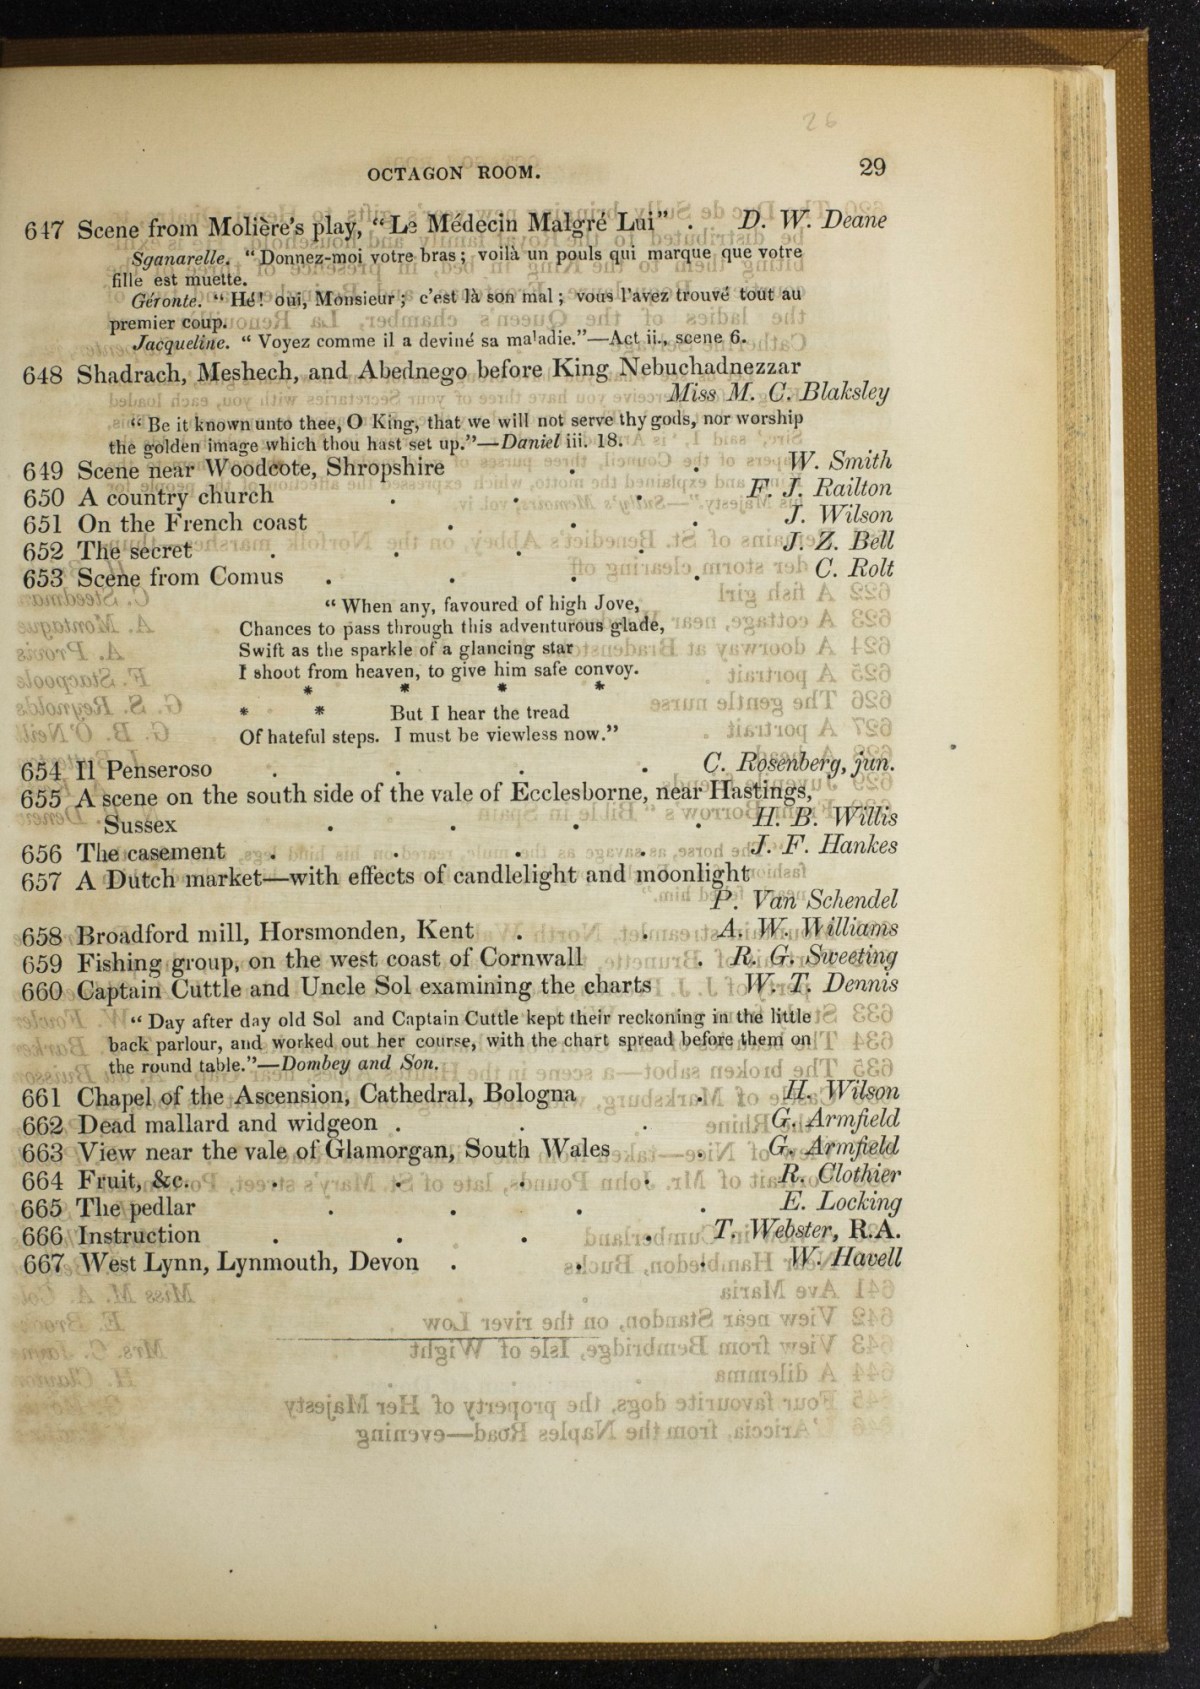 26
OCTAGON ROOM. 29
647 Scene from Molière's play, “Le Médecin Malgré Lui” . D. W. Deane
Sganarelle. “Donnez-moi votre bras; voilà un pouls qui marque que votre
fille est muette.
Géronte. “Hé! oui, Monsieur; c'est là son mal; vous l'avez trouvé tout au
premier coup.
Jacqueline. “Voyez comme il a deviné sa maladie.”—Act ii., scene 6.
648 Shadrach, Meshech, and Abednego before King Nebuchadnezzar
Miss M. C. Blaksley
“Be it known unto thee, O King, that we will not serve thy gods, nor worship
the golden image which thou hast set up.”—Daniel iii. 18.
649 Scene near Woodcote, Shropshire . . W. Smith
650 A country church . . . F. J. Railton
651 On the French coast . . . J. Wilson
652 The secret . . . . J. Z. Bell
653 Scene from Comus . . . . C. Rolt
“When any, favoured of high Jove,
Chances to pass through this adventurous glade,
Swift as the sparkle of a glancing star
I shoot from heaven, to give him safe convoy.
* * * *
* * But I hear the tread
Of hateful steps. I must be viewless now.”
654 Il Penseroso . . . . C. Rosenberg, jun.
655 A scene on the south side of the vale of Ecclesborne, near Hastings,
Sussex . . . . H. B. Willis
656 The casement . . . . J. F. Hankes
657 A Dutch market—with effects of candlelight and moonlight
P. Van Schendel
658 Broadford mill, Horsmonden, Kent . . A. W. Williams
659 Fishing group, on the west coast of Cornwall . R. G. Sweeting
660 Captain Cuttle and Uncle Sol examining the charts W. T. Dennis
“Day after day old Sol and Captain Cuttle kept their reckoning in the little
back parlour, and worked out her course, with the chart spread before them on
the round table.”—Dombey and Son.
661 Chapel of the Ascension, Cathedral, Bologna . H. Wilson
662 Dead mallard and widgeon . . . G. Armfield
663 View near the vale of Glamorgan, South Wales . G. Armfield
664 Fruit, &c. . . . . R. Clothier
665 The pedlar . . . . E. Locking
666 Instruction . . . . T. Webster, R.A.
667 West Lynn, Lynmouth, Devon . . . W. Havell